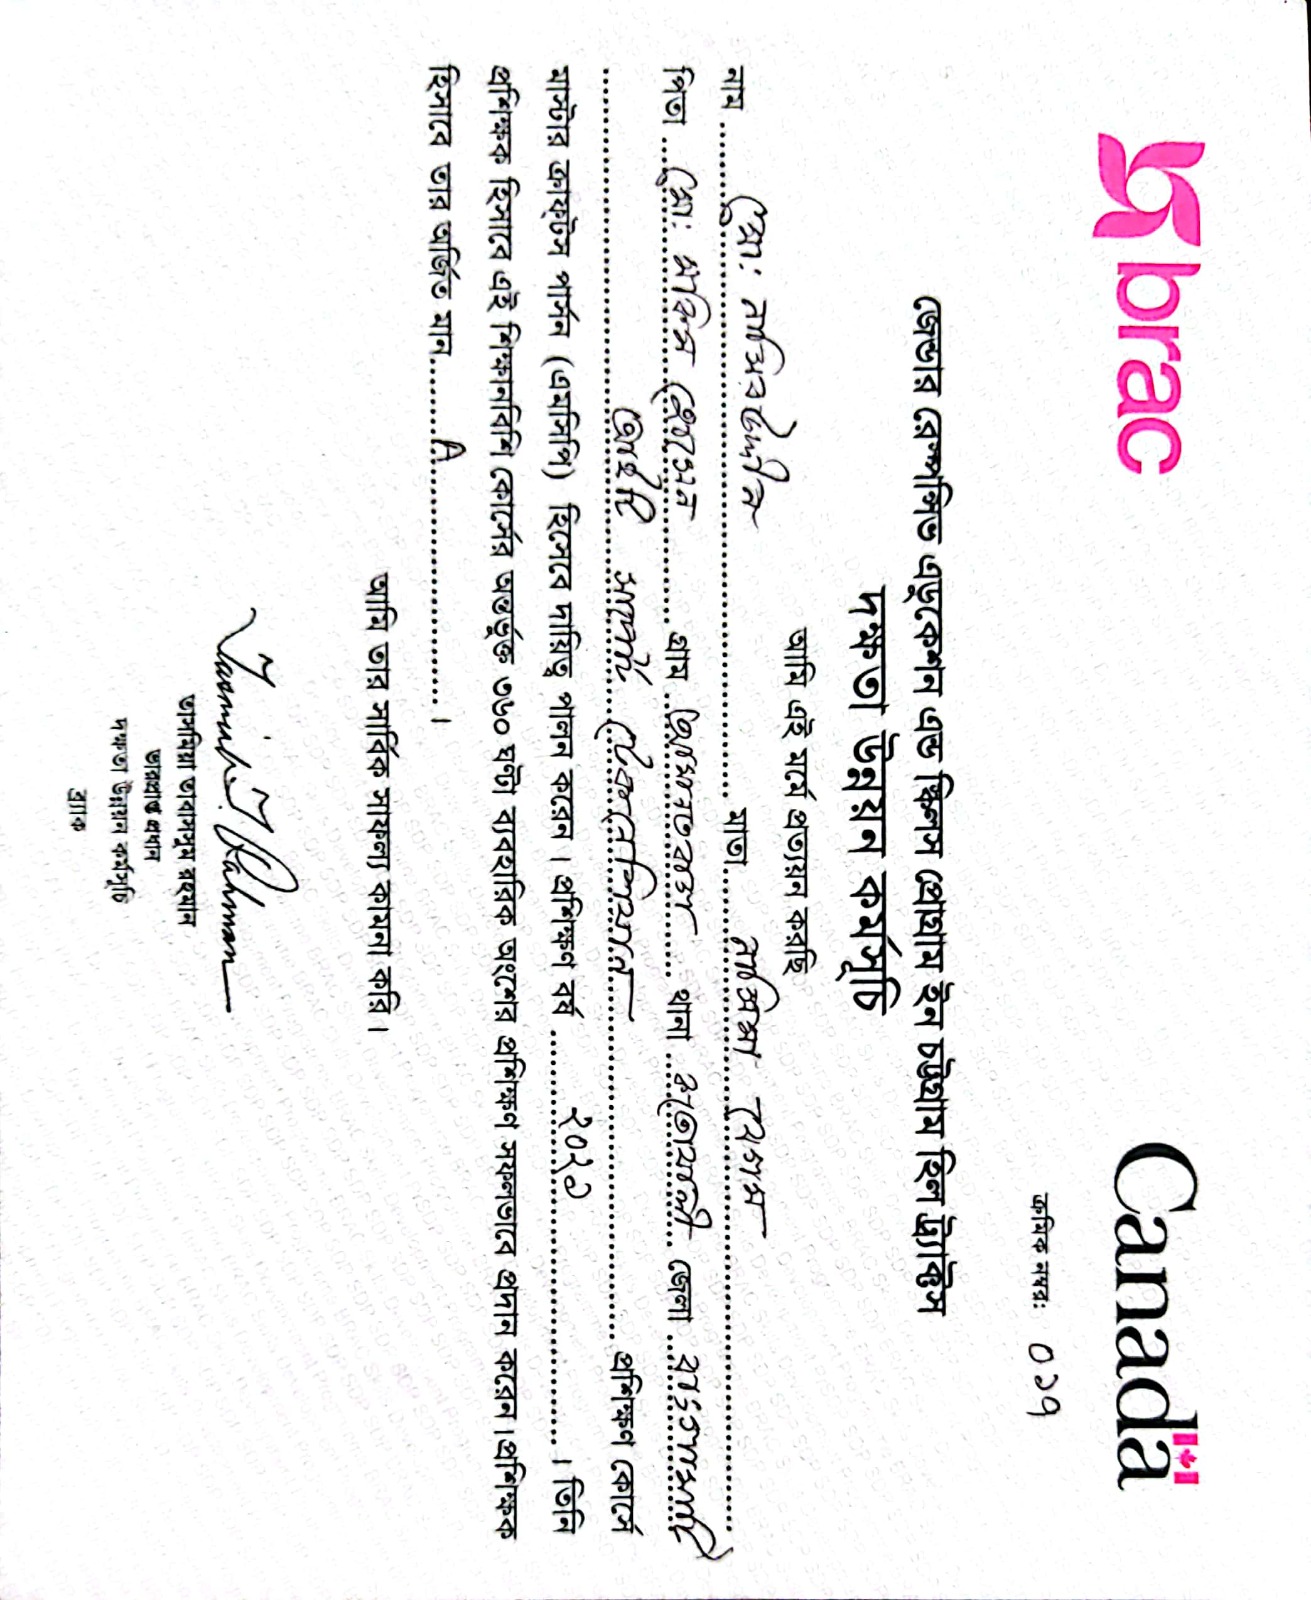 brac
Canada
ক্রমিক নম্বর: ০১৭
জেন্ডার রেস্পন্সিভ এডুকেশন এন্ড স্কিলস প্রোগ্রাম ইন চট্টগ্রাম হিল ট্র্যাক্টস
দক্ষতা উন্নয়ন কর্মসূচি
আমি এই মর্মে প্রত্যয়ন করছি
নাম মো: নাসিরউদ্দীন মাতা নাসিমা বেগম
পিতা মো: মফিজ হোসেন গ্রাম থানা কতোয়ালী জেলা রাঙ্গামাটি
আইটি সাপোর্ট টেকনেশিয়ান প্রশিক্ষণ কোর্সে
মাস্টার ক্রাফ্টস পার্সন (এমসিপি) হিসেবে দায়িত্ব পালন করেন। প্রশিক্ষণ বর্ষ ২০২১। তিনি
প্রশিক্ষক হিসাবে এই শিক্ষানবিশি কোর্সের অন্তর্ভুক্ত ৩৬০ ঘন্টা ব্যবহারিক অংশের প্রশিক্ষণ সফলভাবে প্রদান করেন। প্রশিক্ষক
হিসাবে তার অর্জিত মান A।
আমি তার সার্বিক সাফল্য কামনা করি।
Tasmiah T Rahman
তাসমিয়া তাবাসসুম রহমান
ভারপ্রাপ্ত প্রধান
দক্ষতা উন্নয়ন কর্মসূচি
ব্র্যাক